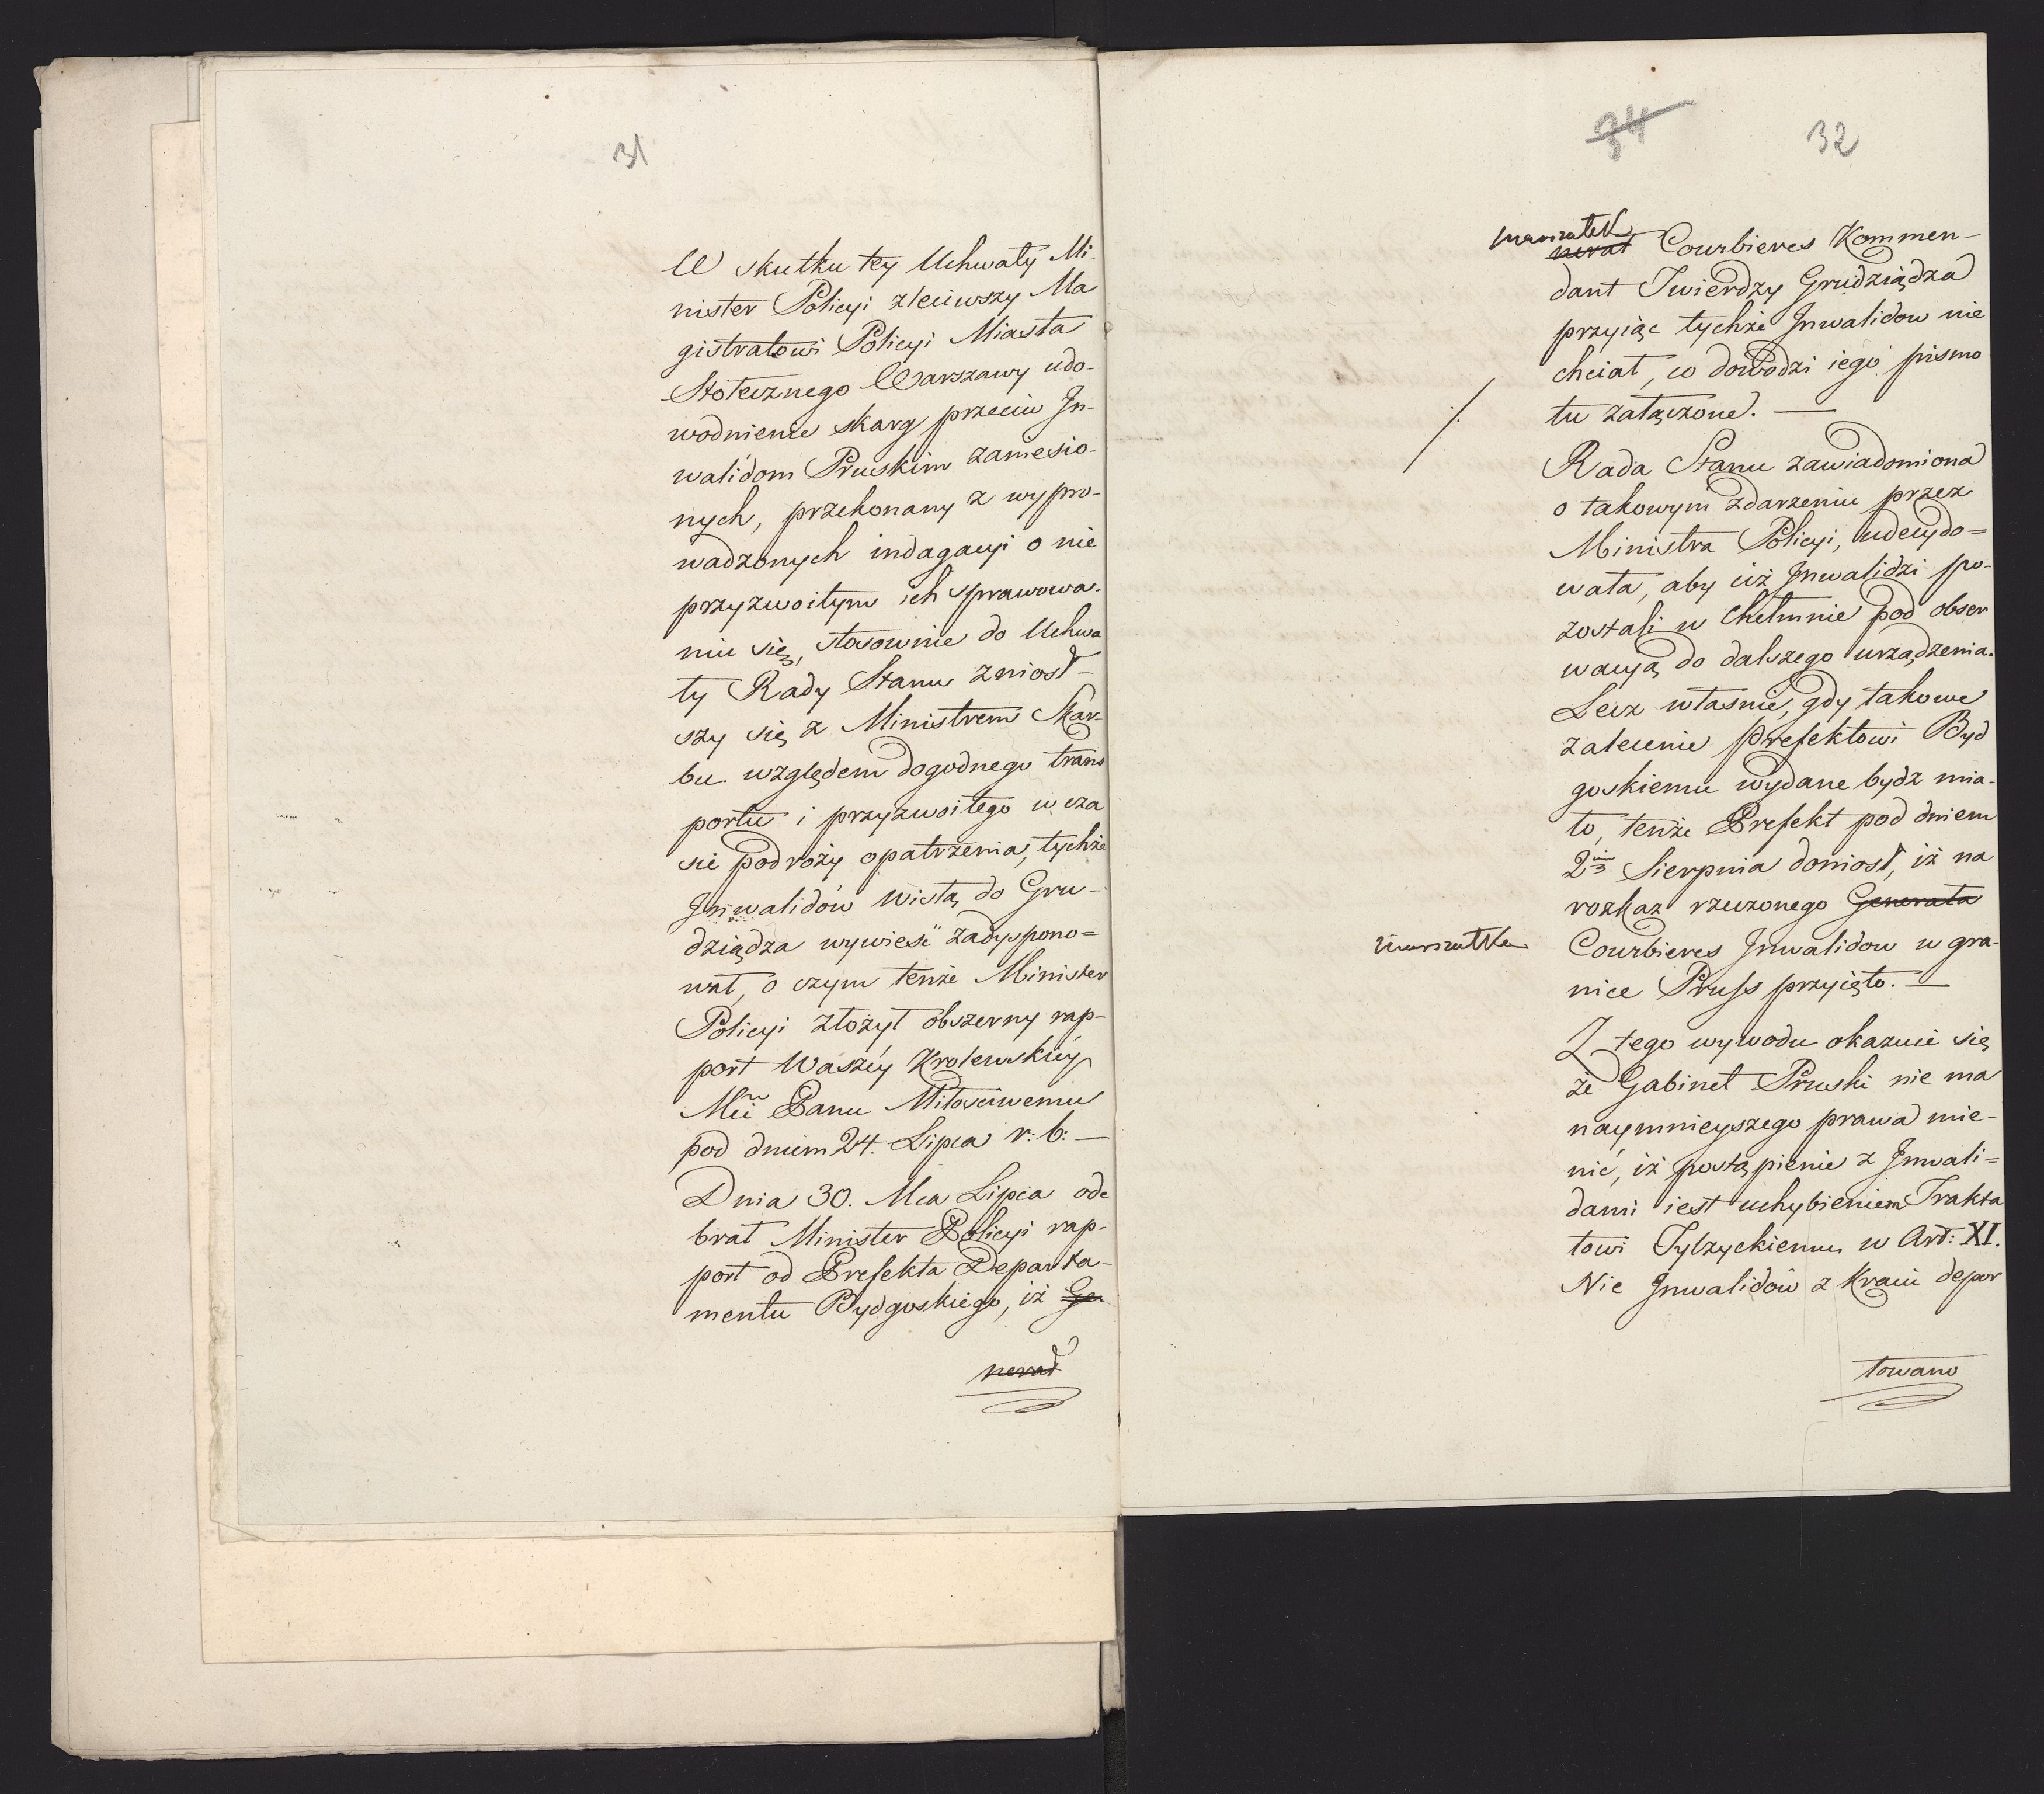 31
W skutku tey Uchwały Mi-
nister Policyi zleciwszy Ma
gistratowi Policyi Miasta
Stołecznego Warszawy udo-
wodnienie skarg przeciw In-
walidom Pruskim zaniesio-
nych, przekonany z wypro-
wadzonych indagacyi o nie
przyzwoitym ich sprawowa-
niu się, stosownie do Uchwa
ły Rady Stanu zniosł-
szy się z Ministrem Skar-
bu względem dogodnego trans
portu i przyzwoitego w cza
sie podroży opatrzenia, tychże
Inwalidów Wisłą do Gru-
dziądza wywieść zadyspono=
wał, o czym tenże Minister
Policyi złożył obszerny rap-
port Waszéy Krolewskiéy
Mci Panu Miłosciwemu
pod dniem 24. Lipca r: b: —
Dnia 30. Mca Lipca ode
brał Minister Policyi rap-
port od Prefekta Departa-
mentu Bydgoskiego, iż Ge
nerał
34 32
marszałek
nerał Courbieres Kommen-
dant Twierdzy Grudziądza
przyiąc tychże Inwalidow nie
chciał, co dowodzi iego pismo
./. tu załączone. —
Rada Stanu zawiadomiona
o takowym zdarzeniu przez
Ministra Policyi, udecydo=
wała, aby ciż Inwalidzi po-
zostali w Chełmnie pod obser
wacyą do dalszego urządzenia.
Lecz własnie, gdy takowe
zalecenie Prefektowi Byd
goskiemu wydane bydz mia-
ło, tenże Prefekt pod dniem
2im Sierpnia doniosł, iż na
rozkaz rzeczonego Generała
marszałka Courbieres Inwalidow w gra-
nice Pruss przyięto. —
Z tego wywodu okazuie się
że Gabinet Pruski nie ma
naymnieyszego prawa mie-
nić, iż postąpienie z Inwali=
dami iest uchybieniem Trakta
towi Tylzyckiemu w Art: XI.
Nie Inwalidów z Kraiu depor
towano